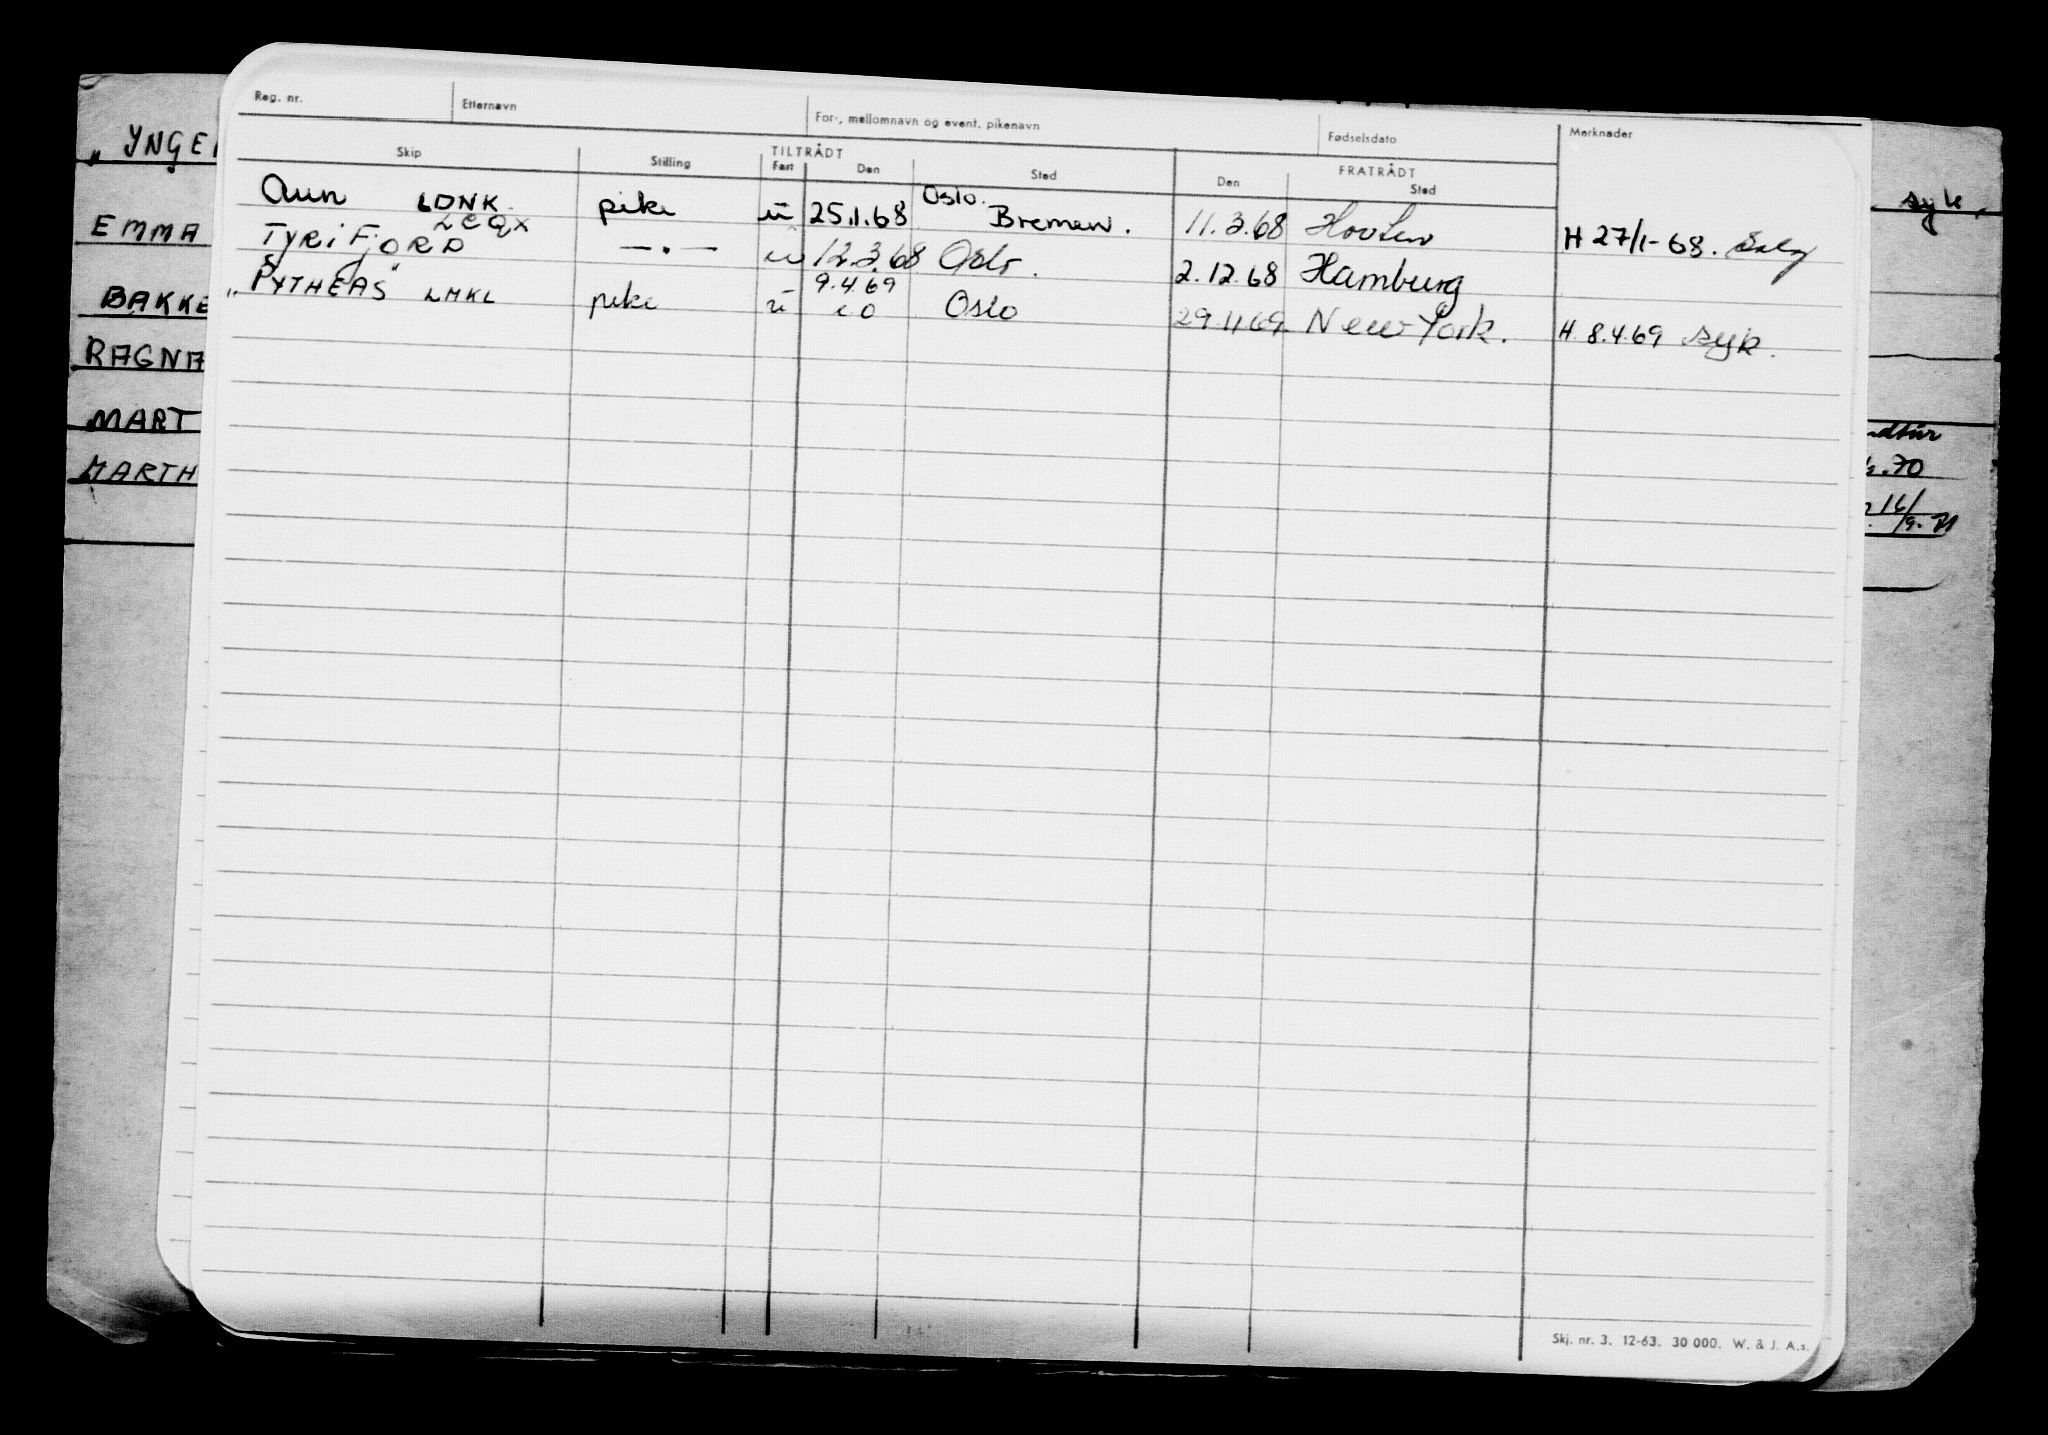 Reg. nr. Etternavn For-, mellomnavn og event. pikenavn Fødselsdato Merknader
Skip Stilling TILTRÅDT FRATRÅDT
Fart Den Sted Den Sted
Aun LDNK pike u 25.1.68 Oslo. Bremen. 11.3.68 H 27/1-68.
TYRiFJORD LCQX —.— u 12.3.68 Oslo. 2.12.68 Hamburg
"PYTHEAS" LMKL pike u 9.4.69 Oslo 29.11.69 New York. H. 8.4.69 syk.
„YNGE
EMMA
BAKKE
RAGNA
MART
MARTH
syk.
.70
16/9.
Skj. nr. 3. 12-63. 30 000. W. & J. A.s.